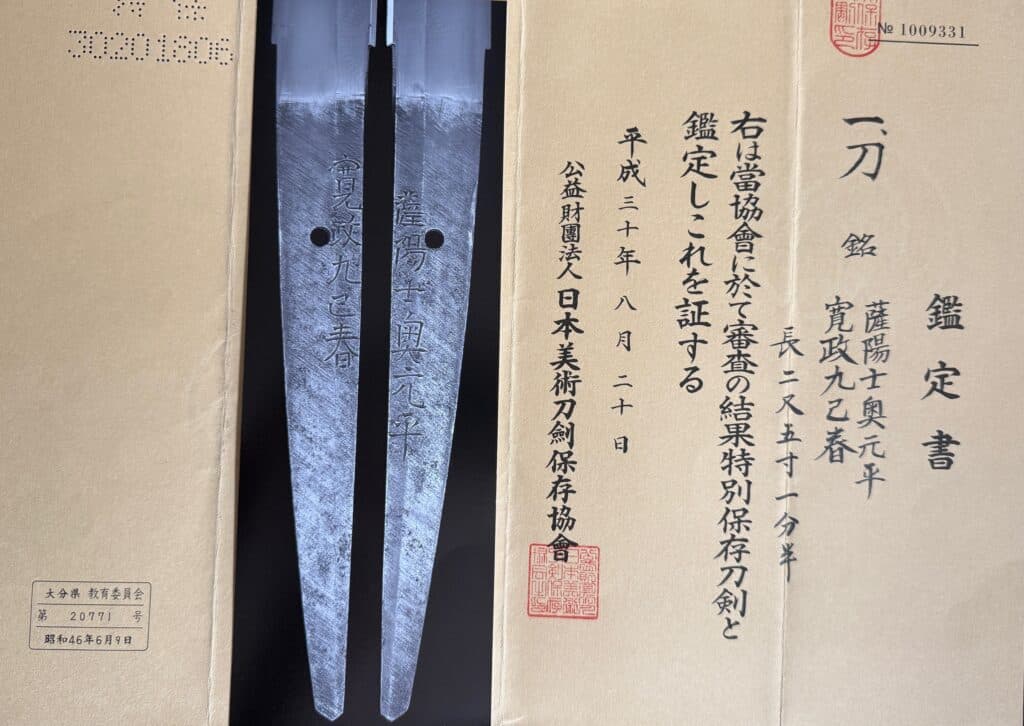 № 1009331
鑑定書
一、刀 銘 薩陽士奥元平
寛政九己春
長二尺五寸一分半
右は當協會に於て審査の結果特別保存刀剣と
鑑定しこれを証する
平成三十年八月二十日
公益財團法人日本美術刀劍保存協會
薩陽士奥元平
寛政九己春
30201806
大分県 教育委員会
第 20771 号
昭和46年6月9日